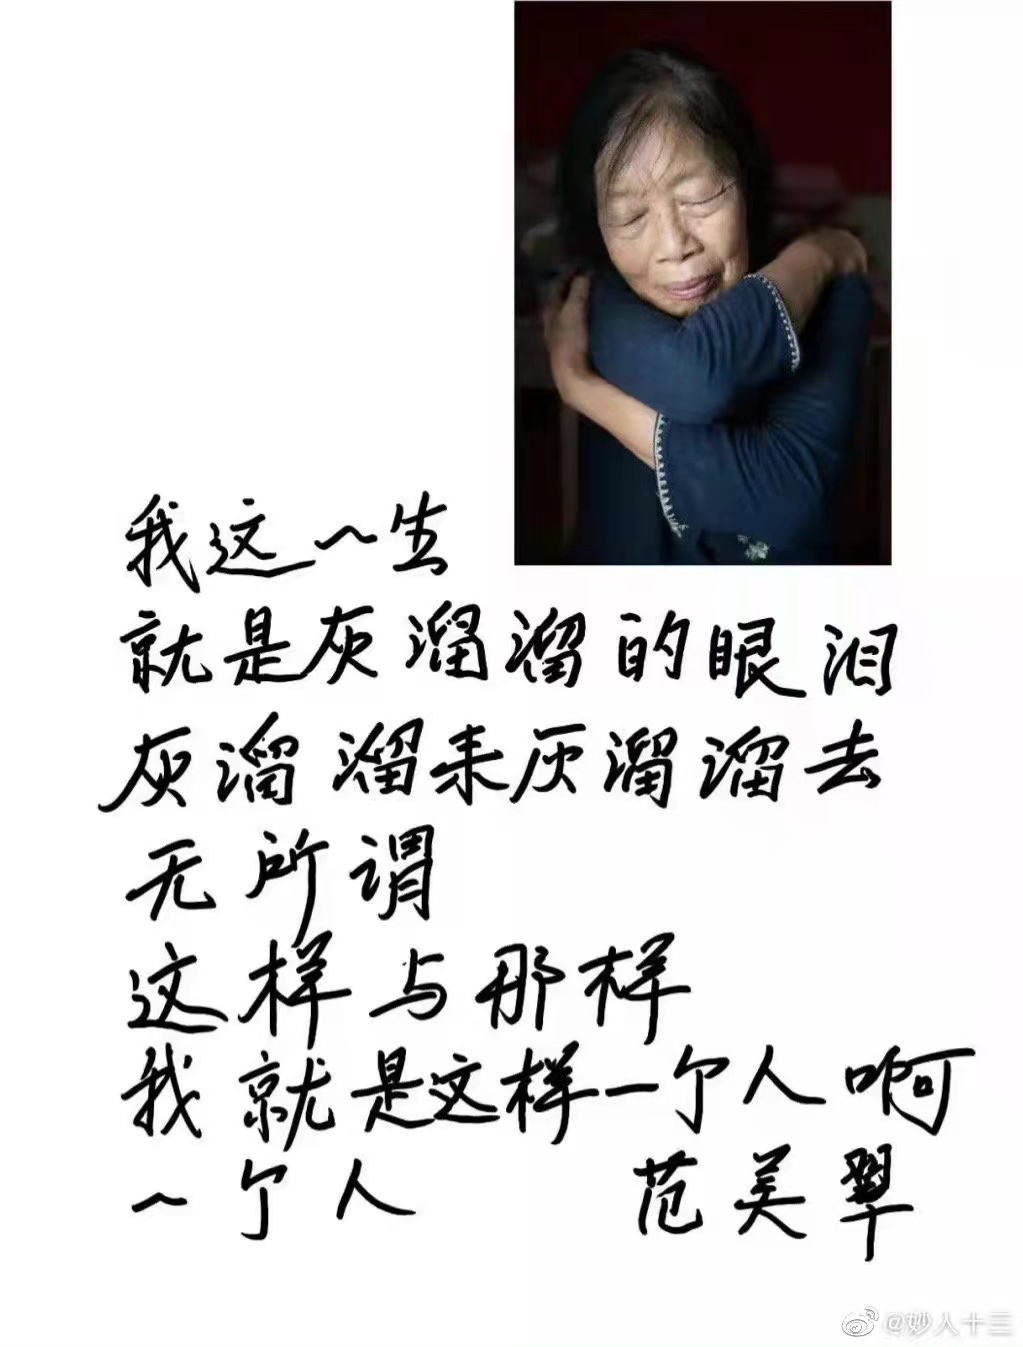 我这一生
就是灰溜溜的眼泪
灰溜溜来灰溜溜去
无所谓
这样与那样
我就是这样一个人啊
一个人 范美翠
@妙人十三